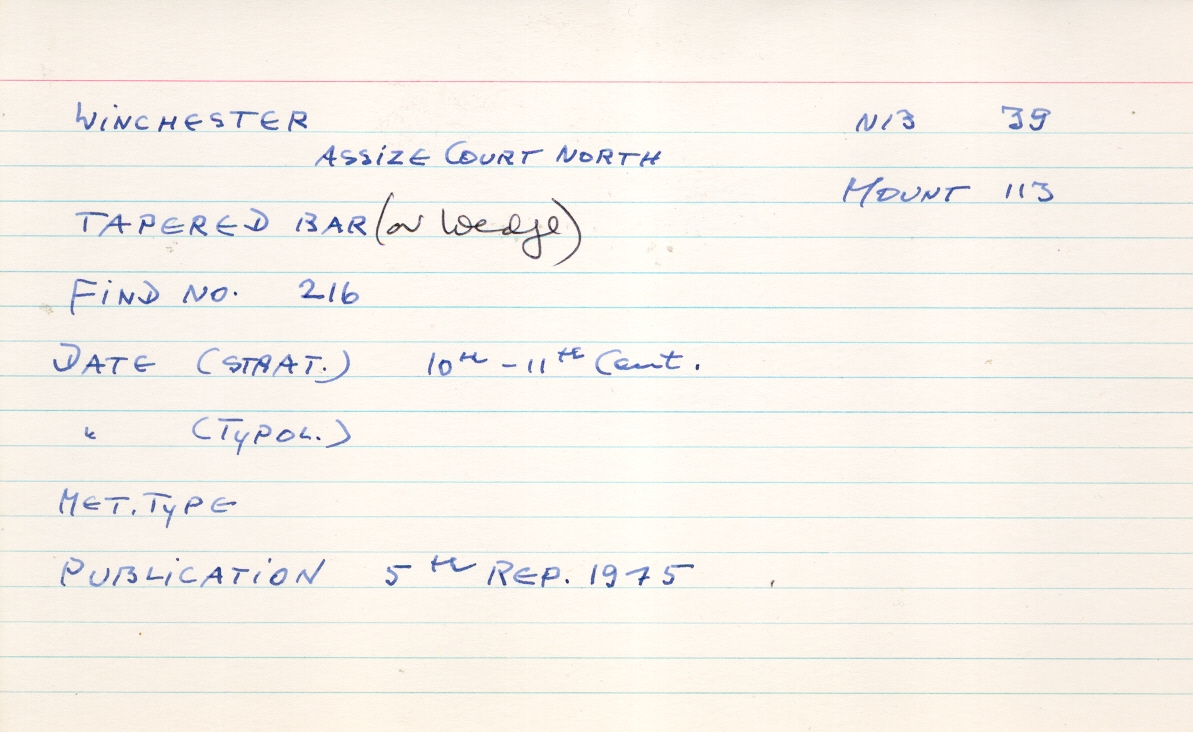 WINCHESTER N13 39
ASSIZE COURT NORTH
MOUNT 113
TAPERED BAR (or Wedge)
FIND NO. 216
DATE (STRAT.) 10th - 11th Cent.
" (TYPOL.)
MET. TYPE
PUBLICATION 5th REP. 1975